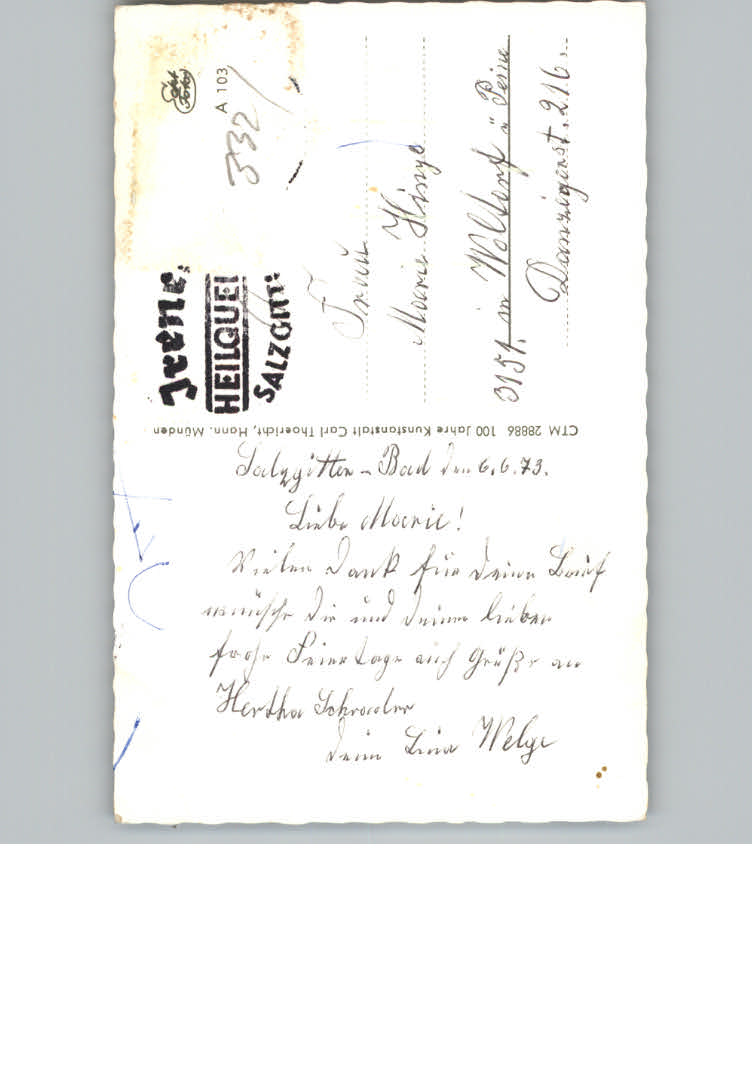 Salzgitter-Bad den 6.6.73.
Liebe Marie!
Vielen Dank für deinen Brief
wünsche Dir und deinen lieben
frohe Feiertage auch Grüße an
Hertha Schrader
dein Lina Welge
CTM 28886 100 Jahre Kunstanstalt Carl Thoericht, Hann. Münden
Echt Foto
A 103
332
HEILQUEL
SALZGITT
Frau
Marie
3151. in Woltorf ü Peine
Danzigerst. 216